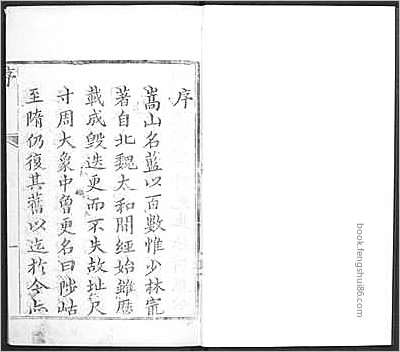 序
嵩山名藍以百數惟少林寔
著自北魏太和間經始雖歴
載成毀迭更而不失故址尺
寸周大象中曾更名曰陟岵
至隋仍復其舊以迄於今
序
一
book.fengshui86.com